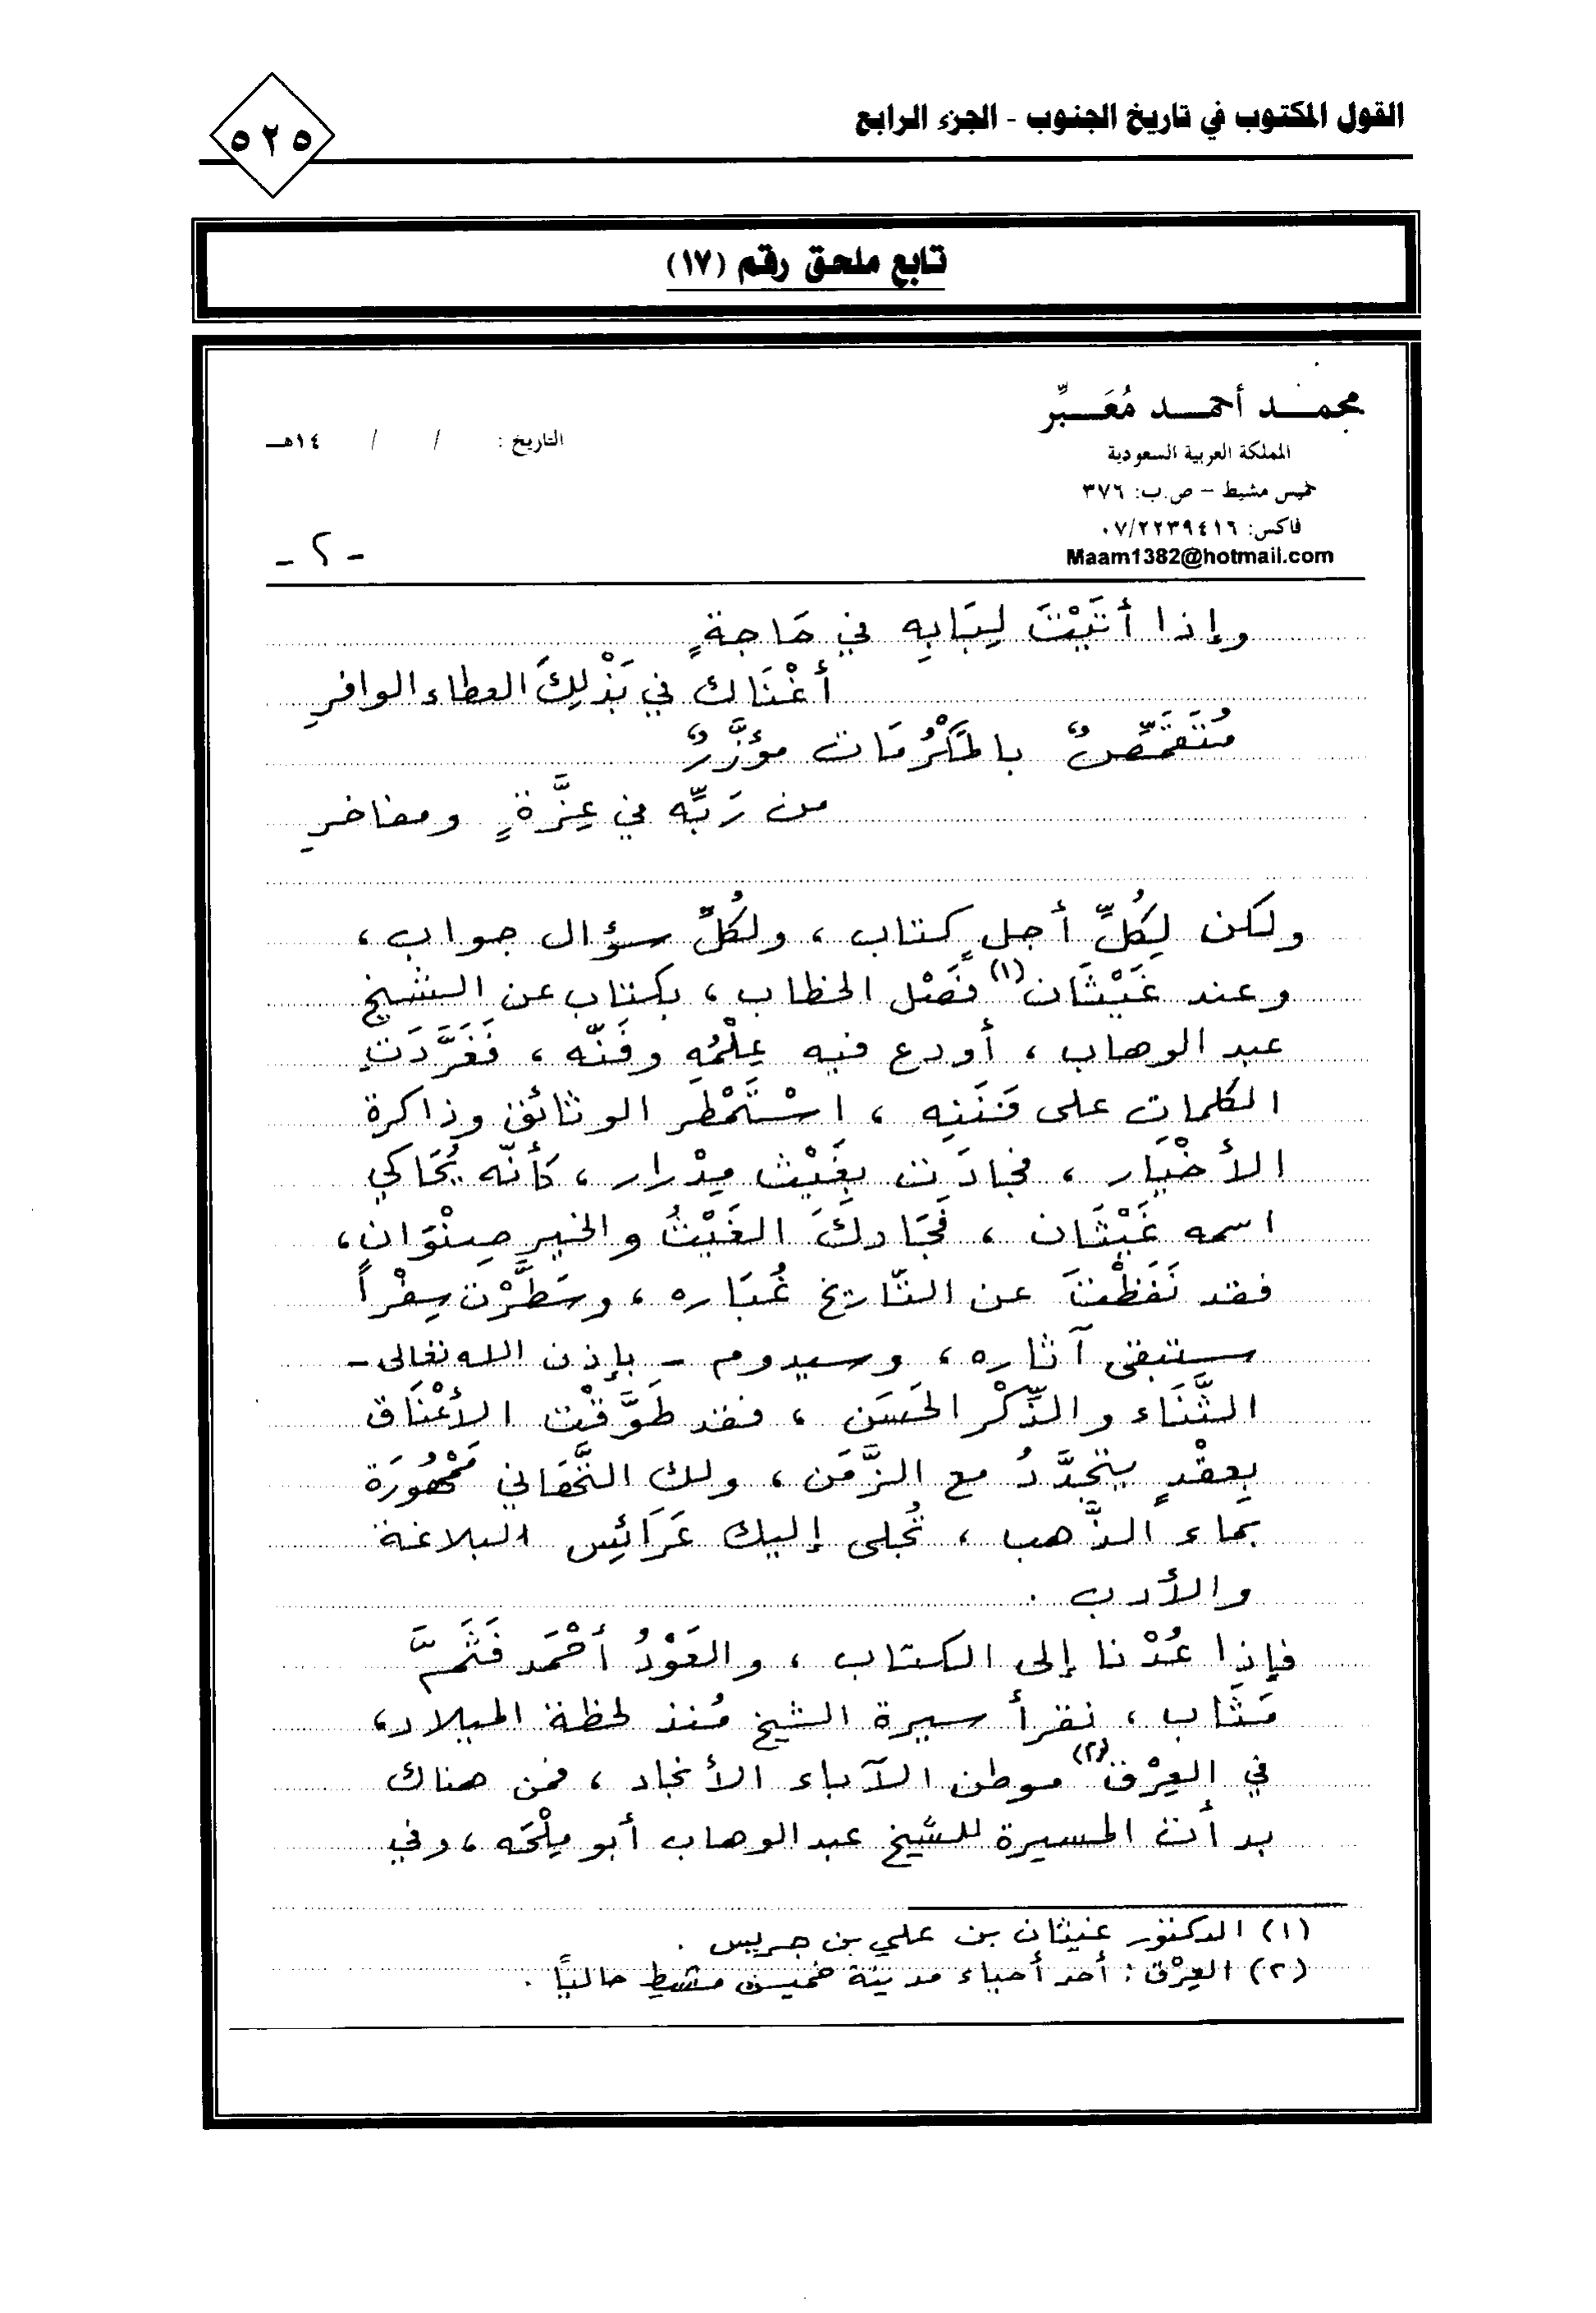 القول المكتوب في تاريخ الجنوب - الجزء الرابع
٥٢٥
تابع ملحق رقم (١٧)
محمد أحمد مُعَبِّر
المملكة العربية السعودية
خميس مشيط - ص.ب: ٣٧٦
فاكس: ٠٧/٢٢٣٩٤١٦
Maam1382@hotmail.com
التاريخ : / / ١٤هـ
- ٢ -
وإذا أتَيْتَ لِبَابِهِ في حَاجةٍ
أغْنَاك في بَذْلِكَ العطاء الوافرِ
مُتَقَمِّصٌ بالمَكْرُمَات مؤزَّرٌ
من رَبِّه في عِزَّةٍ ومفاخرِ
ولكن لِكُلِّ أجلٍ كتاب ، ولكُلِّ سؤال جواب ،
وعند غَيْثَان(١) فَصْل الخطاب ، بكتاب عن الشيخ
عبد الوهاب ، أودع فيه عِلْمُهِ وفَنّه ، فَغَرَّدَتِ
الكلمات على فَنَنِهِ ، اسْتَمْطَر الوثائق وذاكرة
الأخْيَار ، فجادَت بِغَيْث مِدْرار ، كَأنّه يُحَاكي
اسمه غَيْثَان ، فَجَادكَ الغَيْثُ والخير صِنْوَانِ ،
فقد نَفَظْتَ عن التّاريخ غُبَاره ، وسَطَّرْت سِفْراً
ستبقى آثاره ، وسيدوم - بإذن الله تعالى -
الثَّنَاء والذِّكْر الحَسَن ، فقد طَوَّقْت الأعْنَاق
بِعقْدٍ يتجدَّدُ مع الزَّمَن ، ولك التَّهَاني مَمْهُورَة
بماء الذَّهب ، تُجلى إليك عَرَائِس البلاغة
والأدب .
فإذا عُدْنا إلى الكتاب ، والعَوْدُ أحْمَد فَثَمَّ
مَثَاب ، نقرأ سيرة الشيخ مُنذ لحظة الميلاد ،
في العِرْق(٢) موطن الآباء الأنجاد ، فمن هناك
بدأت المسيرة للشيخ عبد الوهاب أبو مِلْحَه ، وفي
(١) الدكتور غيثان بن علي بن جريس .
(٢) العِرْق : أحد أحياء مدينة خميس مشيط حالياً .